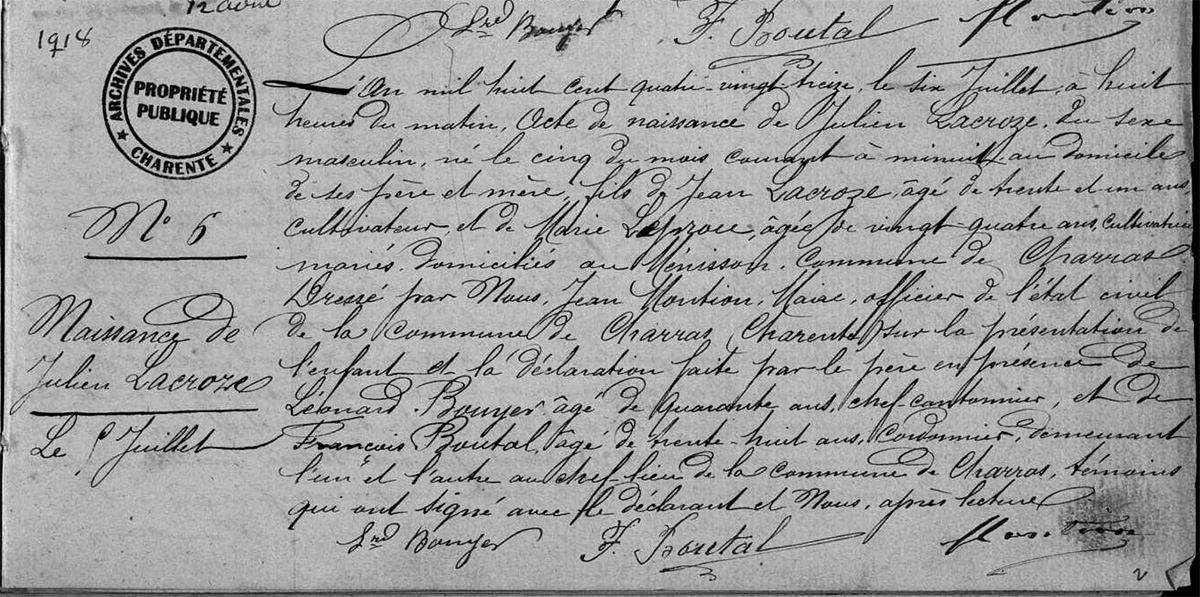 12 avril
1918
Lrd Bouyer F. Boutal Montion
ARCHIVES DÉPARTEMENTALES
PROPRIÉTÉ
PUBLIQUE
★ CHARENTE ★
L'An mil huit cent quatre-vingt-treize, le six Juillet, à huit
heures du matin, Acte de naissance de Julien Lacroze, du sexe
masculin, né le cinq du mois courant à minuit au domicile
de ses père et mère, fils de Jean Lacroze, âgé de trente et un ans,
cultivateur, et de Marie, âgée de vingt-quatre ans, cultivatrice
mariés, domiciliés au Ménisson, commune de Charras
Dressé par Nous, Jean Montion, Maire, officier de l'état civil
de la commune de Charras, Charente, sur la présentation de
l'enfant et la déclaration faite par le père en présence de
Léonard Bouyer âgé de quarante ans, chef-cantonnier, et de
François Boutal, âgé de trente-huit ans, cordonnier, demeurant
l'un et l'autre au chef-lieu de la commune de Charras, témoins
qui ont signé avec le déclarant et Nous, après lecture
Lrd Bouyer F. Boutal Montion
N° 6
Naissance de
Julien Lacroze
Le 5 Juillet
2